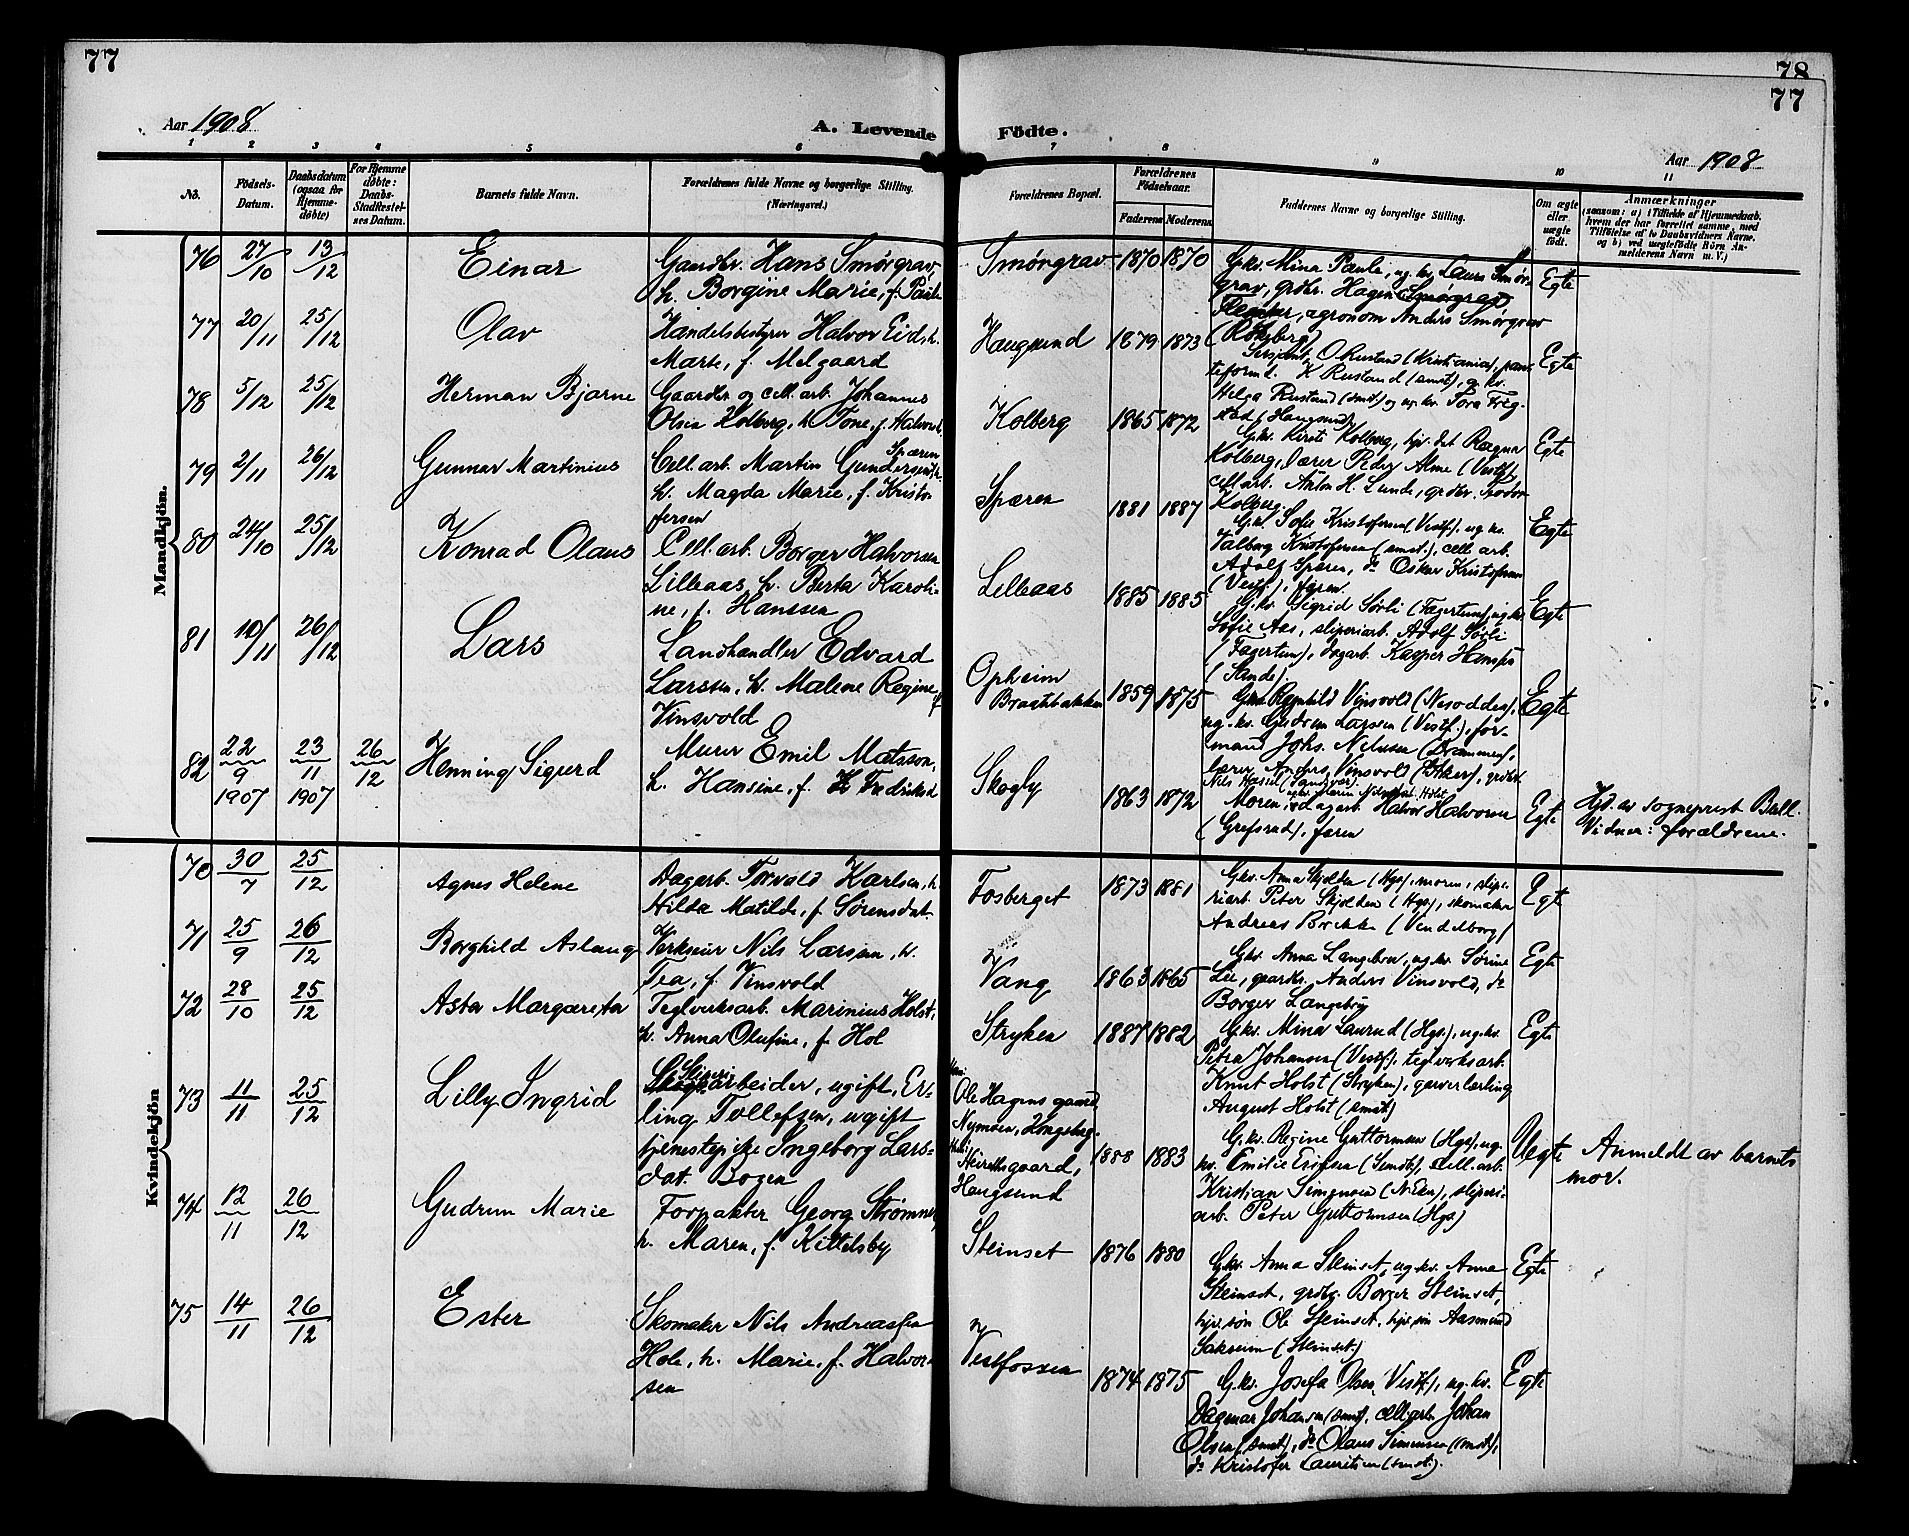 77
78
77
Aar 1908
A. Levende
Födte.
Aar 1908
1 2 3 4 5 6 7 8 9 10 11
No.
Födsels-Datum.
Daabsdatum (ogsaa for Hjemme-döbte)
For Hjemme döbte: Daabs-Stadfæstel-ses Datum.
Barnets fulde Navn.
Forældrenes fulde Navne og borgerlige Stilling.
(Næringsvei.)
Forældrenes Bopæl.
Forældrenes Födselsaar.
Faderens Moderens
Faddernes Navne og borgerlige Stilling.
Om ægte eller uægte födt.
Anmærkninger
(saasom: a) i Tilfælde af Hjemmedaab. hvem der har forrettet samme, med Tilföielse af to Daabsvidners Navne, og b) ved uægtefödte Börn An-melderens Navn m. V.)
Mandkjön.
76 27/10 13/12 Einar
Gaardbr. Hans Smørgrav,
h. Borgine Marie, f. Paule
Smørgrav 1870 1870
Gkv. Mina Paule, ug. kv. Laura Smør-
grav, grdbr. Hagen
agronom Anders Smørgrav
Egte
77 20/11 25/12 Olav
Handelsbestyrer Halvor Eid, h.
Marte, f. Melgaard
Haugsund 1879 1873
Sersjant O. Rustand (Kristiania),
K. Rustand (smst),
Helga Rustand (smst) og ug. kv. Tora
(Haugsund)
Egte
78 5/12 25/12 Herman Bjarne
Gaardbr. og cell. arb. Johannes
Olsen Kolberg, h. Tone, f. Halvorsd.
Kolberg 1865 1872
Gkv. Kirsti Kolberg, hjv. dat. Ragna
Kolberg, lærer Peder Alme (Vestf),
cell arb. Anton H. Lunde, grdbr.
Kolberg.
Egte
79 2/11 26/12 Gunnar Martinius
Spæren
Cell. arb. Martin Gundersen
h. Magda Marie, f. Kristo-
fersen
Spæren 1881 1887
Gkv. Sofie Kristofersen (Vestf.), ug. kv.
Valborg Kristofersen (smst.), cell arb.
Adolf Spæren, do Oskar Kristofersen
(Vestf.), faren.
Egte
80 24/10 25/12 Konrad Olaus
Cell. arb. Borger Halvorsen
Lilleaas, h. Berta Karoli-
ne, f. Hanssen
Lilleaas 1885 1885
Gkv. Sigrid Sørli (Fagertun), ug. kv.
Sofie Aas, sliperiarb. Adolf Sørli
(Fagertun), dagarb. Kasper Hansen
(Sande).
Egte
81 10/11 26/12 Lars
Landhandler Edvard
Larssen, h. Malene Regine, f.
Vinsvold
Opheim
Braatebakken 1859 1875
Gkv. Ragnhild Vinsvold (Nesodden),
ug. kv. Gudrun Larssen (Vestf.), for-
mand Johs. Nilssen (Drammen),
lærer Anders Vinsvold (Aker), grdbr.
Nils Hassel (Sandsvær)
Egte
82 22/9 1907 23/11 1907 26/12 Henning Sigurd
Murer Emil Matsson,
h. Hansine, f. Fredriksd
Skogly 1863 1872
Moren, dagarb. Halvor Halvorsen
(Grefsrud), faren
Egte
Hjd. av sogneprest Ball.
Vidner: forældrene.
Kvindekjön
70 30/7 25/12 Agnes Helene
Dagarb. Torvald Karlsen, h.
Hilda Matilde, f. Sørensdat.
Fosberget 1873 1881
Gkv. Anna Skjolden (Hgs), moren, slipe-
riarb. Peter Skjolden (Hgs), skomaker
Andreas Brekke (Vendelborg)
Egt
71 25/9 26/12 Borghild Aslaug
Verkseier Nils Larssen, h.
Tea, f. Vinsvold
Vang 1863 1865
Gkv. Anna Langebru, ug. kv. Sørine
Lie, gaardbr. Anders Vinsvold, do
Borger Langebru
Egte
72 28/10 25/12 Asta Margareta
Teglverksarb. Marinius Holst,
h. Anna Olufine, f. Hol
Stryken 1887 1882
Gkv. Mina Laurud (Hgs.), ug. kv.
Petra Johansen (Vestf), teglverksarb.
Knut Holst (Stryken), garverlærling
August Holst (smst)
Egte
73 11/11 25/12 Lilly Ingrid
Sliperi
arbeider, ugift, Er-
ling Tollefsen, ugift
tjenestepike Ingeborg Lars-
dat. Bogen
Ole Hagens gaard,
Nymoen, Kongsberg.
gaard,
Haugsund 1888 1883
Gkv. Regine Guttormsen (Hgs), ug.
kv. Emilie Eriksen (Smst), cell. arb.
Kristian Simensen (N. Eker), sliperi-
arb. Peter Guttormsen (Hgs)
Uegte
Anmeldt av barnets
mor.
74 12/11 26/12 Gudrun Marie
Forpakter Georg Strømnes,
h. Maren, f. Kittelsby
Steinset 1876 1880
Gkv. Anna Steinset, ug. kv. Anna
Steinset, grdbr. Borger Steinset,
hjv. søn Ole Steinset, hjv. søn Aasmund
Sakseim (Steinset)
Egte
75 14/11 26/12 Ester
Skomaker Nils Andreassen
Hole, h. Marie, f. Halvor-
sen
Vestfossen 1874 1875
Gkv. Josefa Olsen Vestf), ug. kv.
Dagmar Johansen (smst), cell arb. Johan
Olsen (smst), do Olaus Simensen (smst),
do Kristofer Lauritsen (smst).
Egte